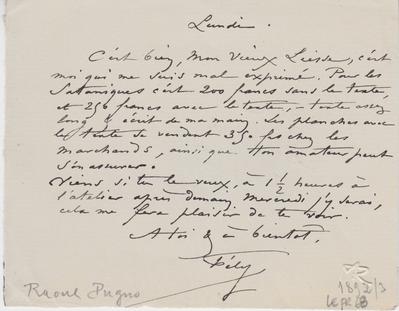 Lundi.
C'est bien, mon vieux Liesse, c'est
moi qui me suis mal exprimé. Pour les
Sataniques c'est 200 francs sans le texte,
et 250 francs avec le texte, – texte assez
long & écrit de ma main. Les planches avec
le texte se vendent 350 fcs chez les
marchands, ainsi que ton amateur peut
s'en assurer.
Viens, si tu le veux, à 1 1/2 heures à
l'atelier après demain, Mercredi j'y serai,
cela me fera plaisir de te voir.
A toi & à bientot,
Fély
Raoul Pugno
1892/3